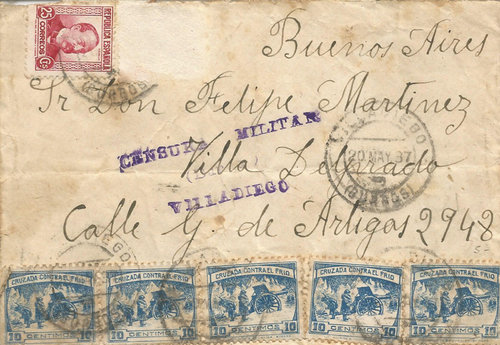 25
REPUBLICA ESPAÑOLA
CORREOS
Cts
Buenos Aires
Sr Don Felipe Martinez
CENSURA MILITAR
VILLADIEGO
20 MAY. 37
(BURGOS)
Villa Devoto
VILLADIEGO
Calle G. de Artigas 2948
CRUZADA CONTRA EL FRIO
10 CENTIMOS 10
CRUZADA CONTRA EL FRIO
10 CENTIMOS 10
CRUZADA CONTRA EL FRIO
10 CENTIMOS 10
CRUZADA CONTRA EL FRIO
10 CENTIMOS 10
CRUZADA CONTRA EL FRIO
10 CENTIMOS 10